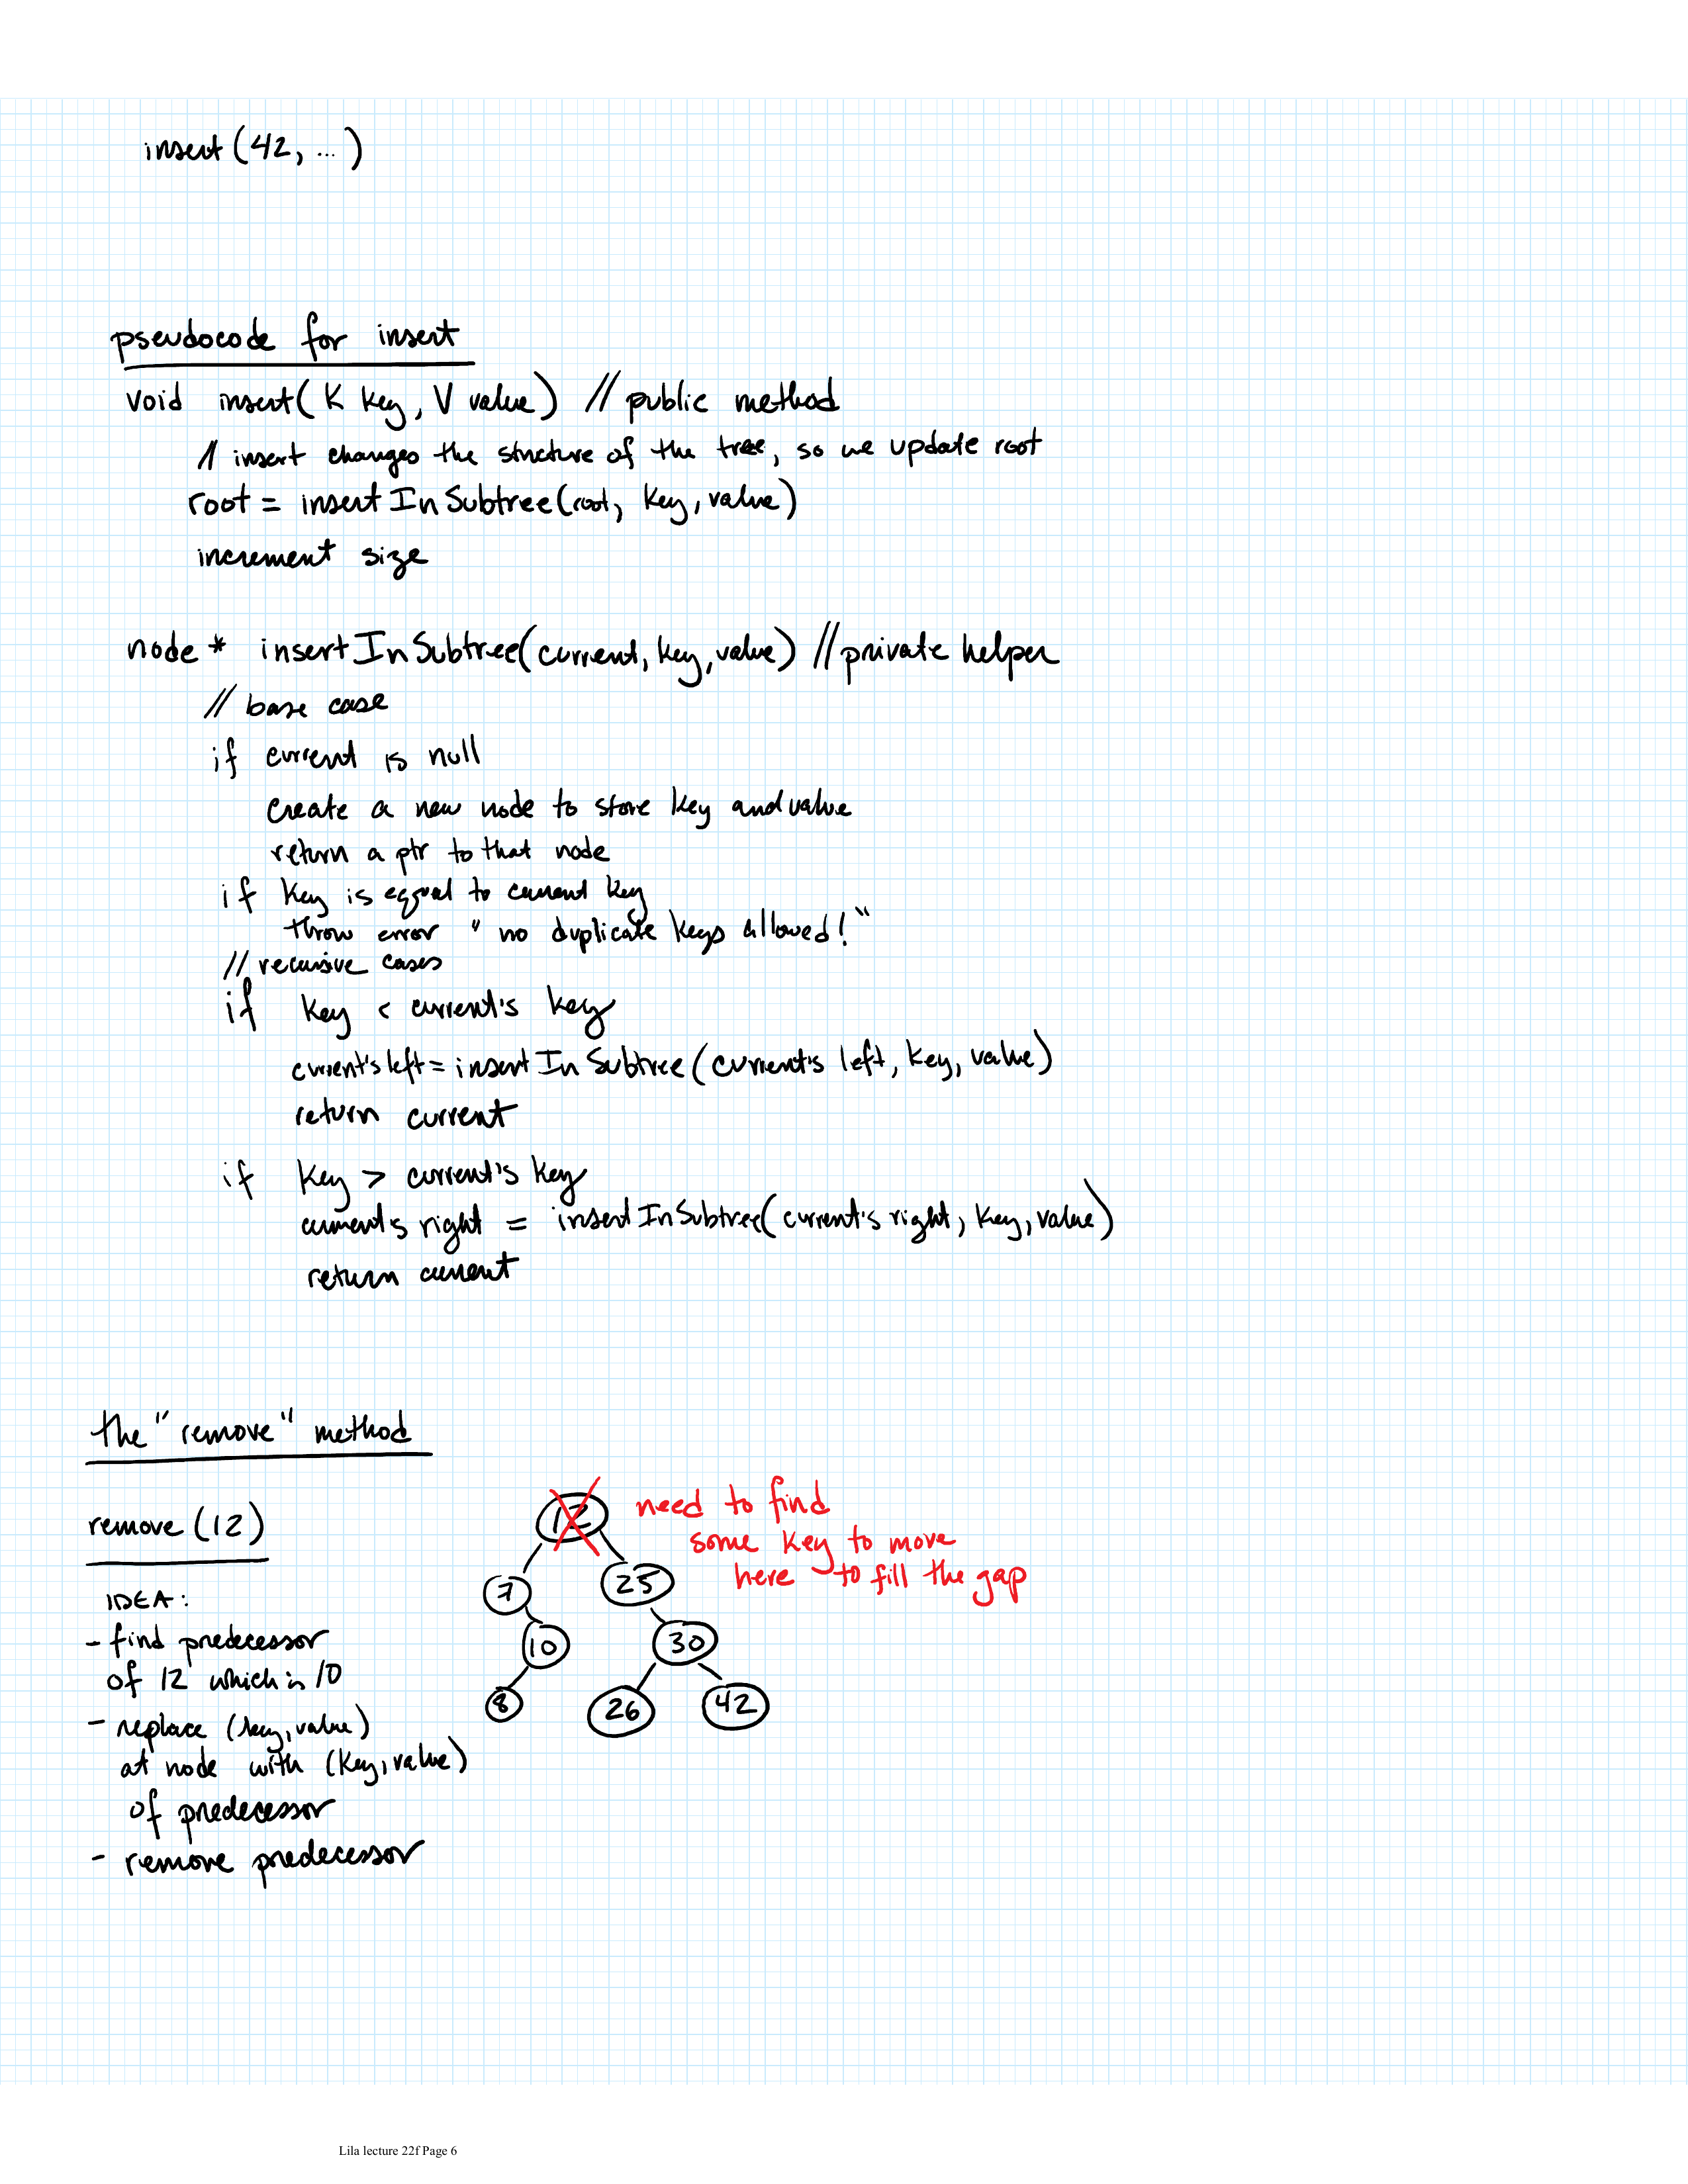 insert (42, ... )
pseudocode for insert
void insert( K key, V value) // public method
// insert changes the structure of the tree, so we update root
root = insertInSubtree(root, key, value)
increment size
node * insertInSubtree(current, key, value) // private helper
// base case
if current is null
create a new node to store key and value
return a ptr to that node
if key is equal to current key
throw error "no duplicate keys allowed!"
// recursive cases
if key < current's key
current's left = insertInSubtree(current's left, key, value)
return current
if key > current's key
current's right = insertInSubtree(current's right, key, value)
return current
the "remove" method
remove (12)
12
need to find
some key to move
here to fill the gap
7
25
10
30
8
26
42
IDEA:
- find predecessor
of 12 which is 10
- replace (key, value)
at node with (key, value)
of predecessor
- remove predecessor
Lila lecture 22f Page 6